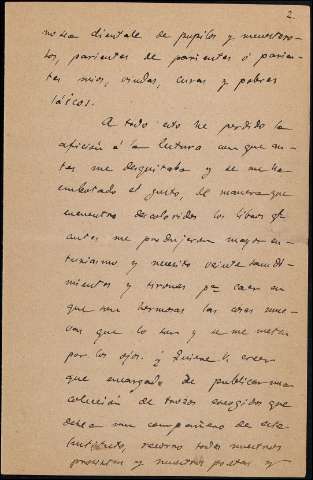 2.
numerosa clientela de pupilos y menestero-
sos, parientes de parientes ó parien-
tes mios, viudas, curas y pobres
láicos.
A todo esto he perdido la
afición á la lectura con que an-
tes me desquitaba y se me ha
embotado el gusto, de manera que
encuentro descoloridos los libros qe
antes me produjeron mayor en-
tusiasmo y necesito veinte sacudi-
mientos y tirones pa caer en
que son hermosas las cosas nue-
vas que lo son y se me meten
por los ojos. ¿Quiere V. creer
que encargado de publicar una
colección de trozos escogidos que
desea un compañero de este
Instituto, recorro todos nuestros
prosistas y nuestros poetas y